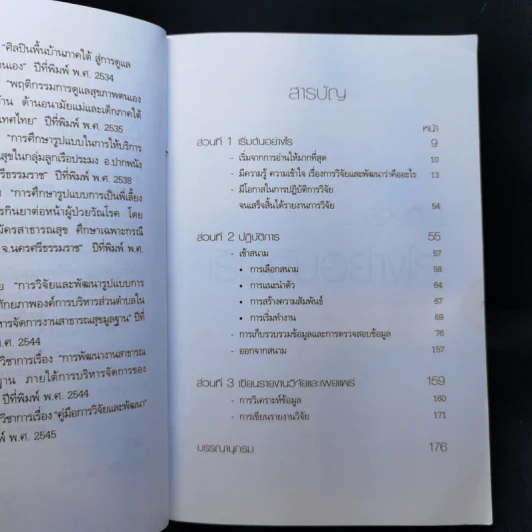 "ศิลปินพื้นบ้านภาคใต้ สู่การดูแล
นเอง" ปีที่พิมพ์ พ.ศ. 2534
"พฤติกรรมการดูแลสุขภาพตนเอง
้าน ด้านอนามัยแม่และเด็กภาคใต้
เทศไทย" ปีที่พิมพ์ พ.ศ. 2535
"การศึกษารูปแบบในการให้บริการ
สุขในกลุ่มลูกเรือประมง อ.ปากพนัง
รีธรรมราช" ปีที่พิมพ์ พ.ศ. 2538
"การศึกษารูปแบบการเป็นพี่เลี้ยง
รกินยาต่อหน้าผู้ป่วยวัณโรค โดย
มัครสาธารณสุข ศึกษาเฉพาะกรณี
จ.นครศรีธรรมราช" ปีที่พิมพ์ พ.ศ.
ย "การวิจัยและพัฒนารูปแบบการ
ักยภาพองค์การบริหารส่วนตำบลใน
หารจัดการงานสาธารณสุขมูลฐาน" ปีที่
ศ. 2544
วิชาการเรื่อง "การพัฒนางานสาธารณ
ฐาน ภายใต้การบริหารจัดการของ
ปีที่พิมพ์ พ.ศ. 2544
วิชาการเรื่อง "คู่มือการวิจัยและพัฒนา"
พ์ พ.ศ. 2545
สารบัญ
หน้า
ส่วนที่ 1 เริ่มต้นอย่างไร 9
- เริ่มจากการอ่านให้มากที่สุด 10
- มีความรู้ ความเข้าใจ เรื่องการวิจัยและพัฒนาว่าคืออะไร 13
- มีโอกาสในการปฏิบัติการวิจัย
จนเสร็จสิ้นได้รายงานการวิจัย 54
ส่วนที่ 2 ปฏิบัติการ 55
- เข้าสนาม 57
• การเลือกสนาม 58
• การแนะนำตัว 64
• การสร้างความสัมพันธ์ 67
• การเริ่มทำงาน 69
- การเก็บรวบรวมข้อมูลและการตรวจสอบข้อมูล 76
- ออกจากสนาม 157
ส่วนที่ 3 เขียนรายงานวิจัยและเผยแพร่ 159
- การวิเคราะห์ข้อมูล 160
- การเขียนรายงานวิจัย 171
บรรณานุกรม 176